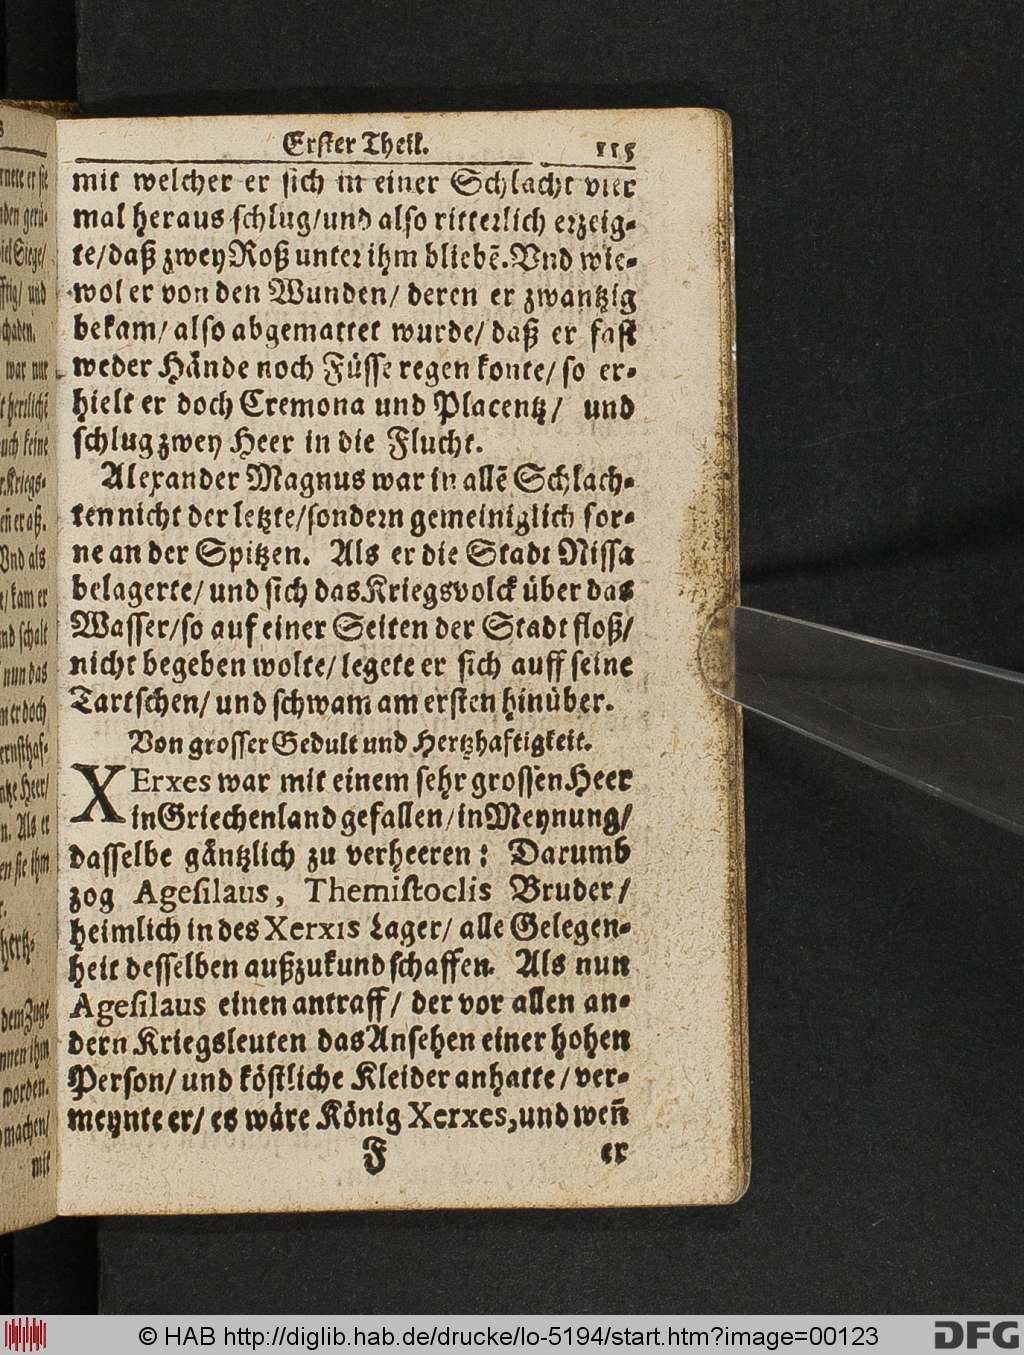 Erster Theil. 115
mit welcher er sich in einer Schlacht vier
mal heraus schlug/und also ritterlich erzeig-
te/daß zwey Roß unter ihm bliebẽ. Vnd wie-
wol er von den Wunden/ deren er zwantzig
bekam/ also abgemattet wurde/ daß er fast
weder Hände noch Füsse regen konte/ so er-
hielt er doch Cremona und Placentz/ und
schlug zwey Heer in die Flucht.
Alexander Magnus war in allẽ Schlach-
ten nicht der letzte/sondern gemeiniglich for-
ne an der Spitzen. Als er die Stadt Nissa
belagerte/ und sich das Kriegsvolck über das
Wasser/so auf einer Seiten der Stadt floß/
nicht begeben wolte/ legete er sich auff seine
Tartschen/ und schwam am ersten hinüber.
Von grosser Gedult und Hertzhaftigkeit.
XErxes war mit einem sehr grossen Heer
in Griechenland gefallen/in Meynung/
dasselbe gäntzlich zu verheeren: Darumb
zog Agesilaus, Themistoclis Bruder/
heimlich in des Xerxis Lager/ alle Gelegen-
heit desselben außzukundschaffen. Als nun
Agesilaus einen antraff/ der vor allen an-
dern Kriegsleuten das Ansehen einer hohen
Person/ und köstliche Kleider anhatte/ ver-
meynte er/ es wäre König Xerxes, und weñ
F er
© HAB http://diglib.hab.de/drucke/lo-5194/start.htm?image=00123
DFG